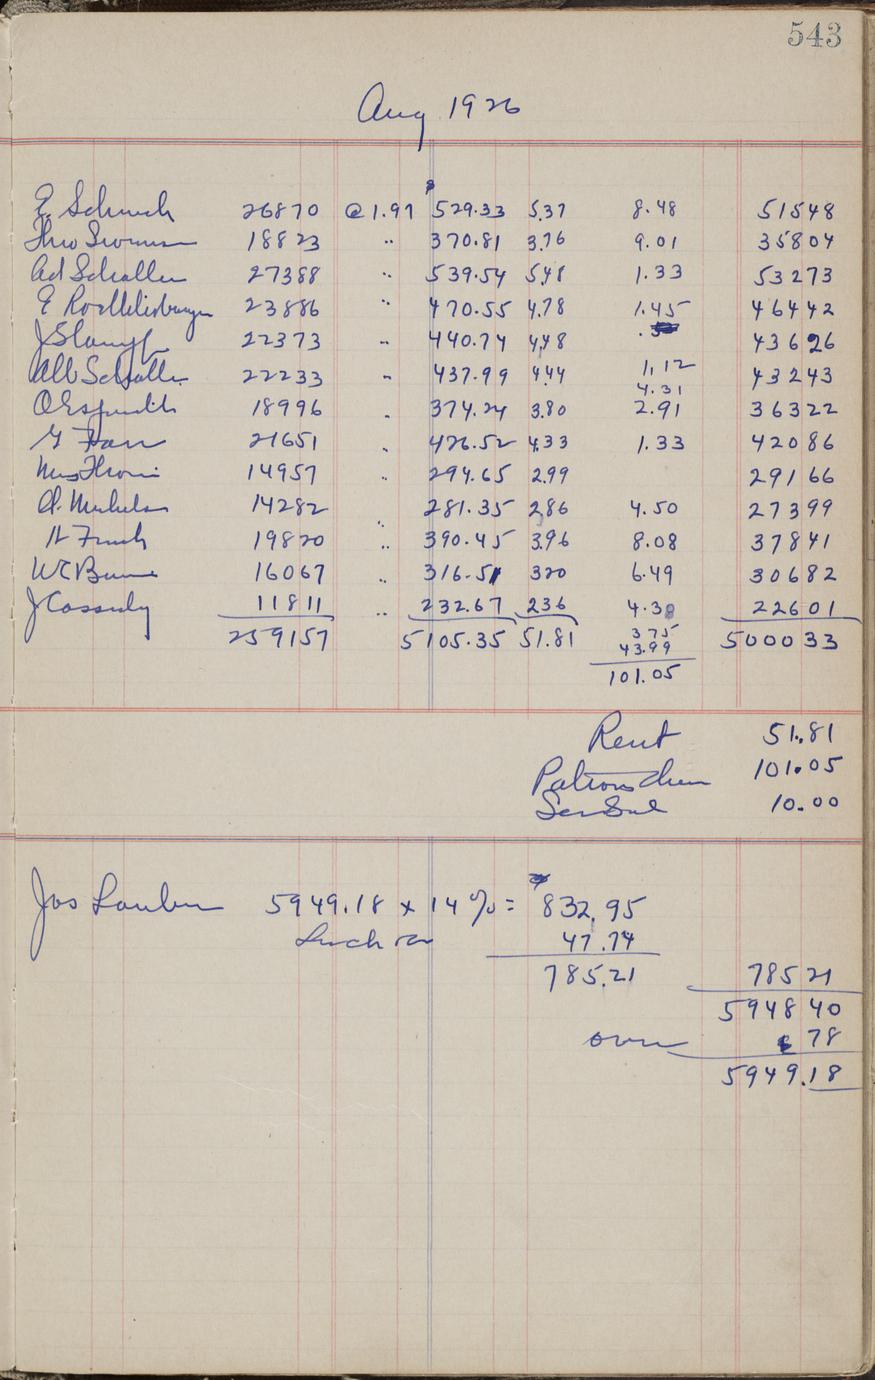 543
Aug 1926
E. Schuch 26870 @ 1.97 $ 529.33 5.37 8.48 51548
Theo 18823 " 370.81 3.76 9.01 35804
Ad Schaller 27388 " 539.54 5.48 1.33 53273
E 23886 " 470.55 4.78 1.45 46442
J Stampf 22373 " 440.74 4.48 43626
Alb Schaller 22233 " 437.99 4.44 1.12 43243
4.31
O 18996 " 374.24 3.80 2.91 36322
21651 " 426.52 4.33 1.33 42086
14957 " 294.65 2.99 29166
14282 " 281.35 2.86 4.50 27399
H Funk 19820 " 390.45 3.96 8.08 37841
WC 16067 " 316.51 3.20 6.49 30682
J Cassidy 11811 " 232.67 2.36 4.30 22601
259157 5105.35 51.81 3.75 500033
43.99
101.05
Rent 51.81
Patrons 101.05
10.00
Jos Lauber 5949.18 x 14 % = 832.95
47.74
785.21 78521
594840
over 78
5949.18